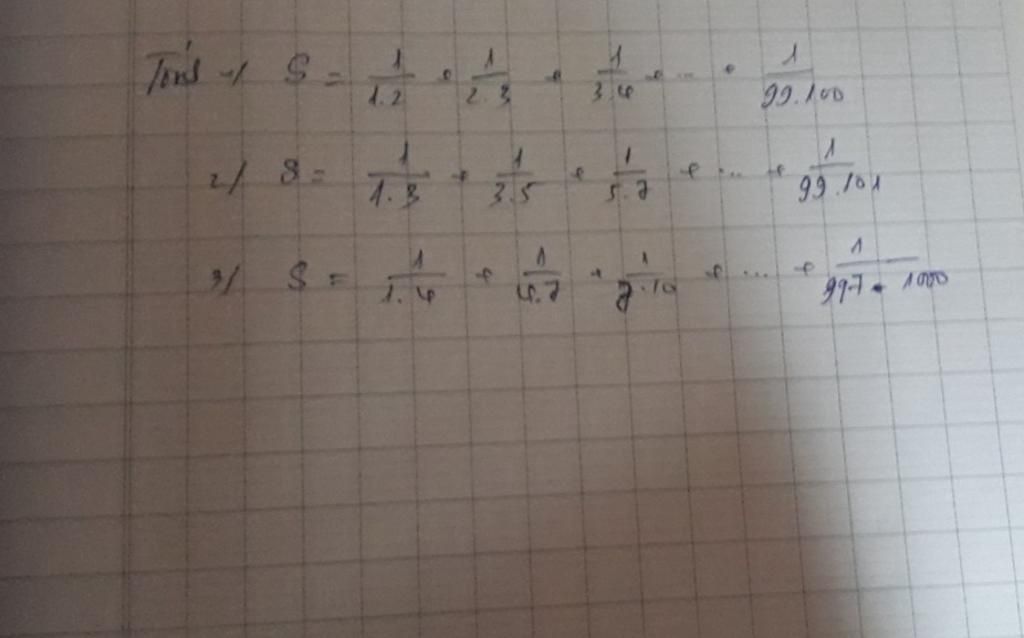 Toán 1/ S = 1/1.2 + 1/2.3 + 1/3.4 + ... + 1/99.100
2/ S = 1/1.3 + 1/3.5 + 1/5.7 + ... + 1/99.101
3/ S = 1/1.4 + 1/4.7 + 1/7.10 + ... + 1/997.1000